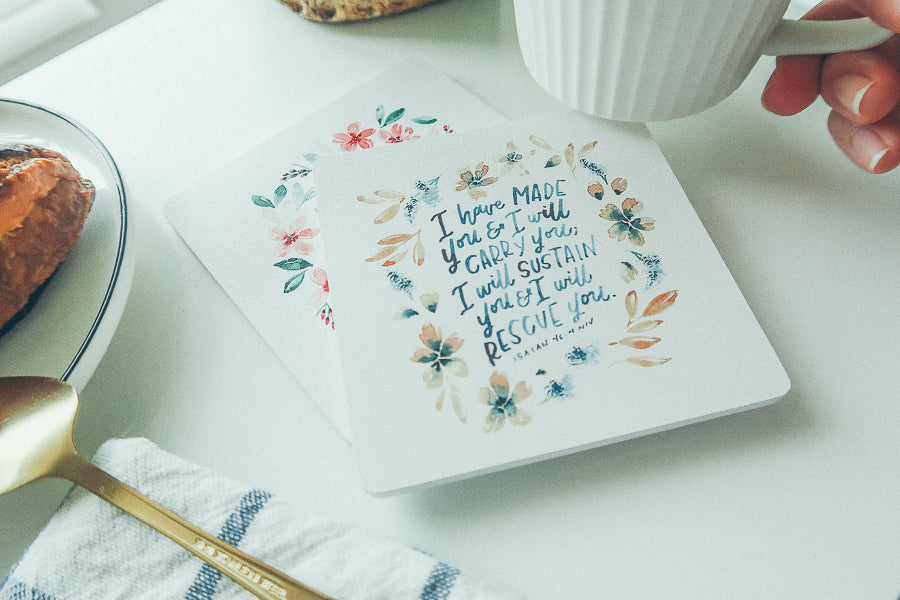 I have MADE
you & I will
CARRY you;
I will SUSTAIN
you & I will
RESCUE you.
ISAIAH 46:4 NIV